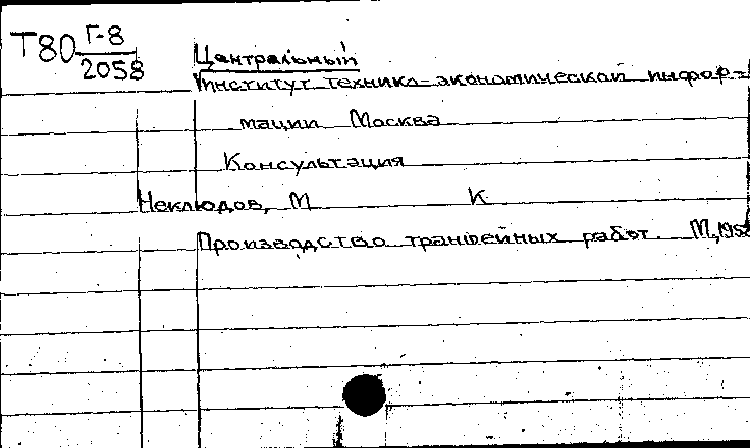 Т80 Г-8
2058
Центральный
Институт технико-экономической инфор-
мации Москва
Консультация
Неклюдов, М К
Производство траншейных работ. М, 195